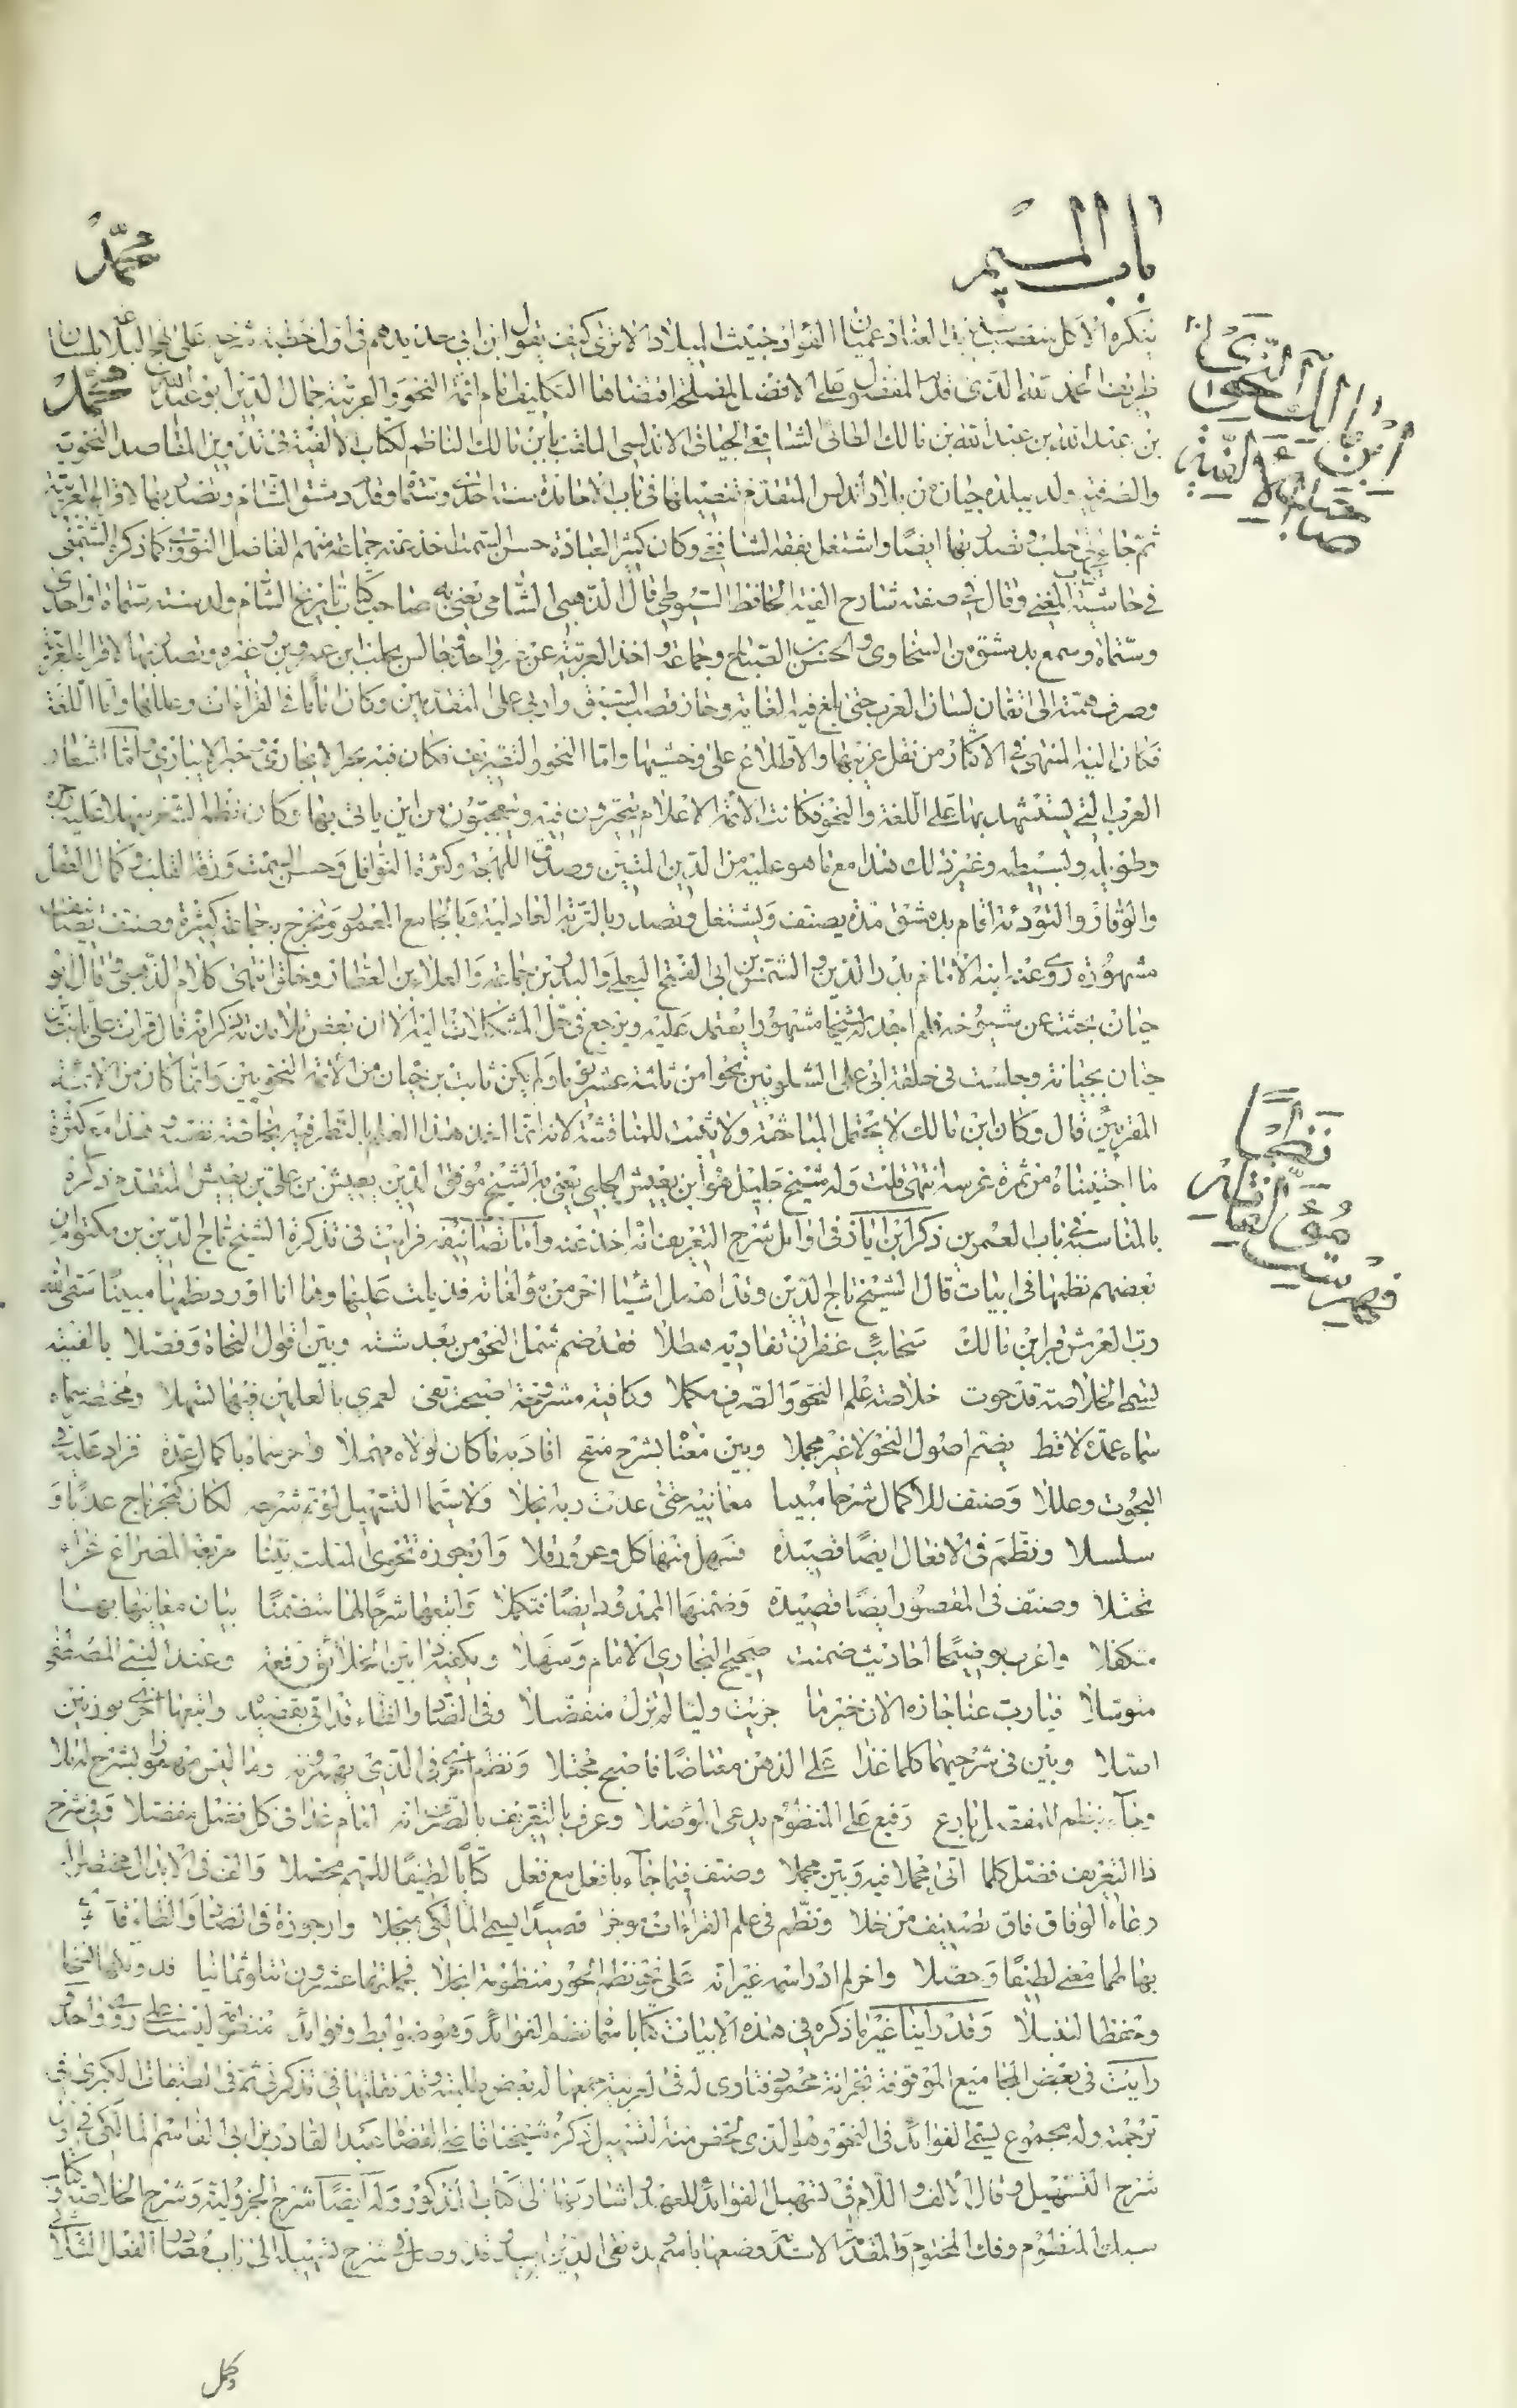 باب الميم
محمد
ينكره الا كل متعصب شديد العناد عميان الفؤاد خبيث الميلاد الا ترى كيف يقول ابن ابي حديدهم في اول خطبة شرحه على نهج البلاغة بلسان
ظريف الحمد لله الذي قدم المفضول على الافضل لمصلحة اقتضاها التكليف امام ائمة النحو والعربية جمال الدين ابو عبد الله محمد
بن عبد الله بن عبد الله بن مالك الطائي الشافعي الجياني الاندلسي الملقب بابن مالك الناظم لكتاب الالفية في تدوين المقاصد النحوية
والصرفية ولد ببلدة جيان من بلاد اندلس المتقدم تفصيلها في باب الاحامدة سنة احدى وستمائة وقدم دمشق الشام وتصدر بها لاقراء العربية
ثم جاء الى حلب وتصدر بها ايضا واشتغل بفقه الشافعي وكان كثير العبادة حسن السمت اخذ عنه جماعة منهم الفاضل النووي كما ذكره الشمني
في حاشية المغني وقال في صفته شارح الفيته الحافظ السيوطي قال الذهبي الشامي يعني به صاحب كتاب تاريخ الشام ولد سنة ستمائة او احدى
وستمائة وسمع بدمشق من السخاوي والحسن بن الصباح وجماعة واخذ العربية عن غير واحد وجالس بحلب ابن عمرون وغيره وتصدر بها لاقراء العربية
وصرف همته الى اتقان لسان العرب حتى بلغ فيه الغاية وحاز قصب السبق واربى على المتقدمين وكان اماما في القراءات وعللها واما اللغة
فكان اليه المنتهى في الاكثار من نقل غريبها والاطلاع على وحشيها واما النحو والتصريف فكان فيه بحرا لا يجارى وحبرا لا يبارى واما اشعار
العرب التي يستشهد بها على اللغة والنحو فكانت الائمة الاعلام يتحيرون فيه ويتعجبون من اين ياتي بها وكان نظم الشعر سهلا عليه رجزه
وطويله وبسيطه وغير ذلك هذا مع ما هو عليه من الدين المتين وصدق اللهجة وكثرة النوافل وحسن السمت ورقة القلب وكمال العقل
والوقار والتؤدة اقام بدمشق مدة يصنف ويشتغل وتصدر بالتربة العادلية وبالجامع المعمور وتخرج به جماعة كثيرة وصنف تصانيف
مشهورة روى عنه ابنه الامام بدر الدين والشمس بن ابي الفتح البعلي والبدر بن جماعة والعلاء بن العطار وخلق انتهى كلام الذهبي وقال ابو
حيان بحثت عن شيوخه فلم اجد له شيخا مشهورا يعتمد عليه ويرجع في حل المشكلات اليه الا ان بعض تلامذته ذكر انه قال قرات على ثابت بن
حيان بجيان وجلست في حلقة ابي علي الشلوبين نحوا من ثلثة عشر يوما ولم يكن ثابت بن حيان من الائمة النحويين وانما كان من الائمة
المقرئين قال وكان ابن مالك لا يحتمل المباحثة ولا يثبت للمناقشة لانه انما اخذ هذا العلم بالنظر فيه بخاصة نفسه هذا مع كثرة
ما اجتنيناه من ثمرة غرسه انتهى قلت وله شيخ جليل هو ابن يعيش الحلبي يعني به الشيخ موفق الدين يعيش بن علي بن يعيش المتقدم ذكره
بالمناسبة في باب العمرين ذكر ابن اياز في اوائل شرح التعريف انه اخذ عنه واما تصانيفه فرايت في تذكرة الشيخ تاج الدين بن مكتوم ان
بعضهم نظمها في ابيات قال الشيخ تاج الدين وقد اهمل اشياء اخر من مؤلفاته فذيلت عليها وها انا اورد نظمها مبينا سقى الله
رب العرش قبر ابن مالك سحائب غفران تغاديه هطلا فقد ضم شمل النحو من بعد شته وبين اقوال النحاة وفصلا بالفية
تسمى الخلاصة قد حوت خلاصة علم النحو والصرف مكملا وكافية مشروحة اصبحت تفي لعمري بالعلمين فيها تسهلا ومختصر سماه
سماه عمدة لاقط يضم اصول النحو لا غير مجملا وبين معناه بشرح منقح افاد به ما كان لولاه مهملا واخر سماه باكمال عمدة فزاد عليه في
البحوث وعللا وصنف للاكمال شرحا مبينا معانيه حتى غدت ربة انجلا ولا سيما التسهيل لو تم شرحه لكان كبحر ماج عذبا و
سلسلا ونظم في الافعال ايضا قصيدة فسهل منها كل وعر وذللا وارجوزة تحوي المثلث بينا مربعة المصراع غراء
تجتلا وصنف في المقصور ايضا قصيدة وضمنها الممدود ايضا فتكملا واتبعها شرحا لها متضمنا بيان معانيها بها
متكفلا واعرب توضيحا احاديث ضمنت صحيح البخاري الامام وسهلا ويكفيه ذا بين الخلائق رفعة وعند النبي المصطفى
متوسلا فيا رب عنا جازه الان خير ما جزيت وليا لم يزل متفضلا وفي الضاد والظاء قد اتى بقصيدة واتبعها اخرى بوزنين
اصلا وبين في شرحيهما كلما غدا على الذهن معتاصا فاصبح مجتلا ونظم اخرى في الذي يهمزونه وما ليس مهموزا بشرح لها تلا
وجاء بنظم للمفصل بارع رفيع على المنظوم يدعى الموصلا وعرف بالتعريف بالصرف انه امام غدا في كل فضل مفضلا وفي شرح
ذا التعريف فصل كلما اتى مجملا فيه وبين مجملا وصنف فيما جاء بافعل مع فعل كتابا لطيفا للمهم محصلا والف في الابدال مختصرا له
دعاه الوفاق فاق تصنيف من خلا ونظم في علم القراءات موجزا قصيدا يسمى المالكي مبجلا وارجوزة في الضاد والظاء قد حوى
بها لهما معنى لطيفا وحصلا واخر لم ادر اسمه غير انه على نحو نظم الحوز منظومة انجلا فجملتها عشرون تتلو ثمانيا فدونكها نسخا
وحفظا لتنبلا وقد راينا غير ما ذكره في هذه الابيات كتابا سماه نظم الفوائد وهو ضوابط وفوائد منظومة ليست على روي واحد
رايت في بعض المجاميع الموقوفة بخزانة محمود فتاوى له في العربية جمعها له بعض طلبته وقد نقلتها في تذكرتي ثم في الطبقات الكبرى في
ترجمته وله مجموع يسمى الفوائد في النحو وهو الذي لخص منه التسهيل ذكره شيخنا قاضي القضاة عبد القادر بن ابي القاسم المالكي في اول
شرح التسهيل وقال الالف واللام في تسهيل الفوائد للعهد اشار بها الى كتاب المذكور وله ايضا شرح الجزولية وشرح الخلاصة وكتاب
سبك المنظوم وفك المختوم والمقدمة الاسدية وضعها باسم ولده تقي الدين اسد وقد وصل في شرح تسهيله الى باب مصادر الفعل الثلاثي
وكمل
ابن مالك النحوي
صاحب الالفية
فهرست
مؤلفاته
نظما